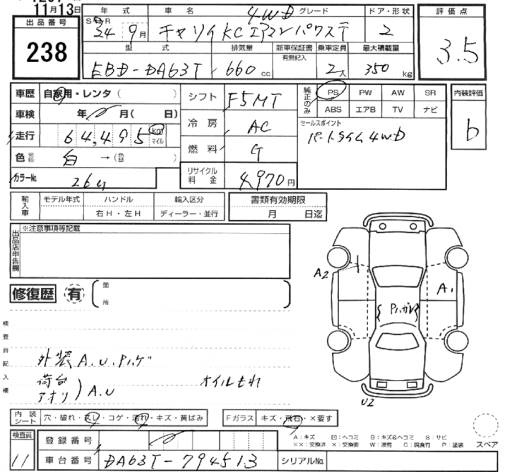 11月13日
出品番号
238
年式 4WD グレード ドア・形状
24 9月 キャリイKCエアコンパワステ 2
型式 排気量 新車保証書 乗車定員 最大積載量
有無記入
EBD-DA63T 660 cc 2人 350 kg
評価点
3.5
車歴 自家用・レンタ( )
車検 年 月( 日)
走行 64,495 km マイル
色 白→( )
カラーNo. 26U
シフト F5MT
冷房 AC
燃料 G
リサイクル料金 4,970円
純正のみ PS PW AW SR
ABS エアB TV ナビ
セールスポイント
パートタイム4WD
内装評価
b
輸入車 モデル年式 ハンドル 輸入区分
右H・左H ディーラー・並行
書類有効期限
月 日迄
出品店申告欄
※注意事項等記載
修復歴 有 箇所
検査員記入欄
外装A.U.ハゲ
荷台
アオリ)A.U オイルモレ
A2
A1
U2
内装シート 穴・破れ・切レ・コゲ・汚れ・キズ・黄ばみ
Fガラス キズ・飛石・×要す
A:キズ B:キズ&ヘコミ S:サビ
スペア
検査員 11
登録番号
車台番号 DA63T-794513 シリアルNo.